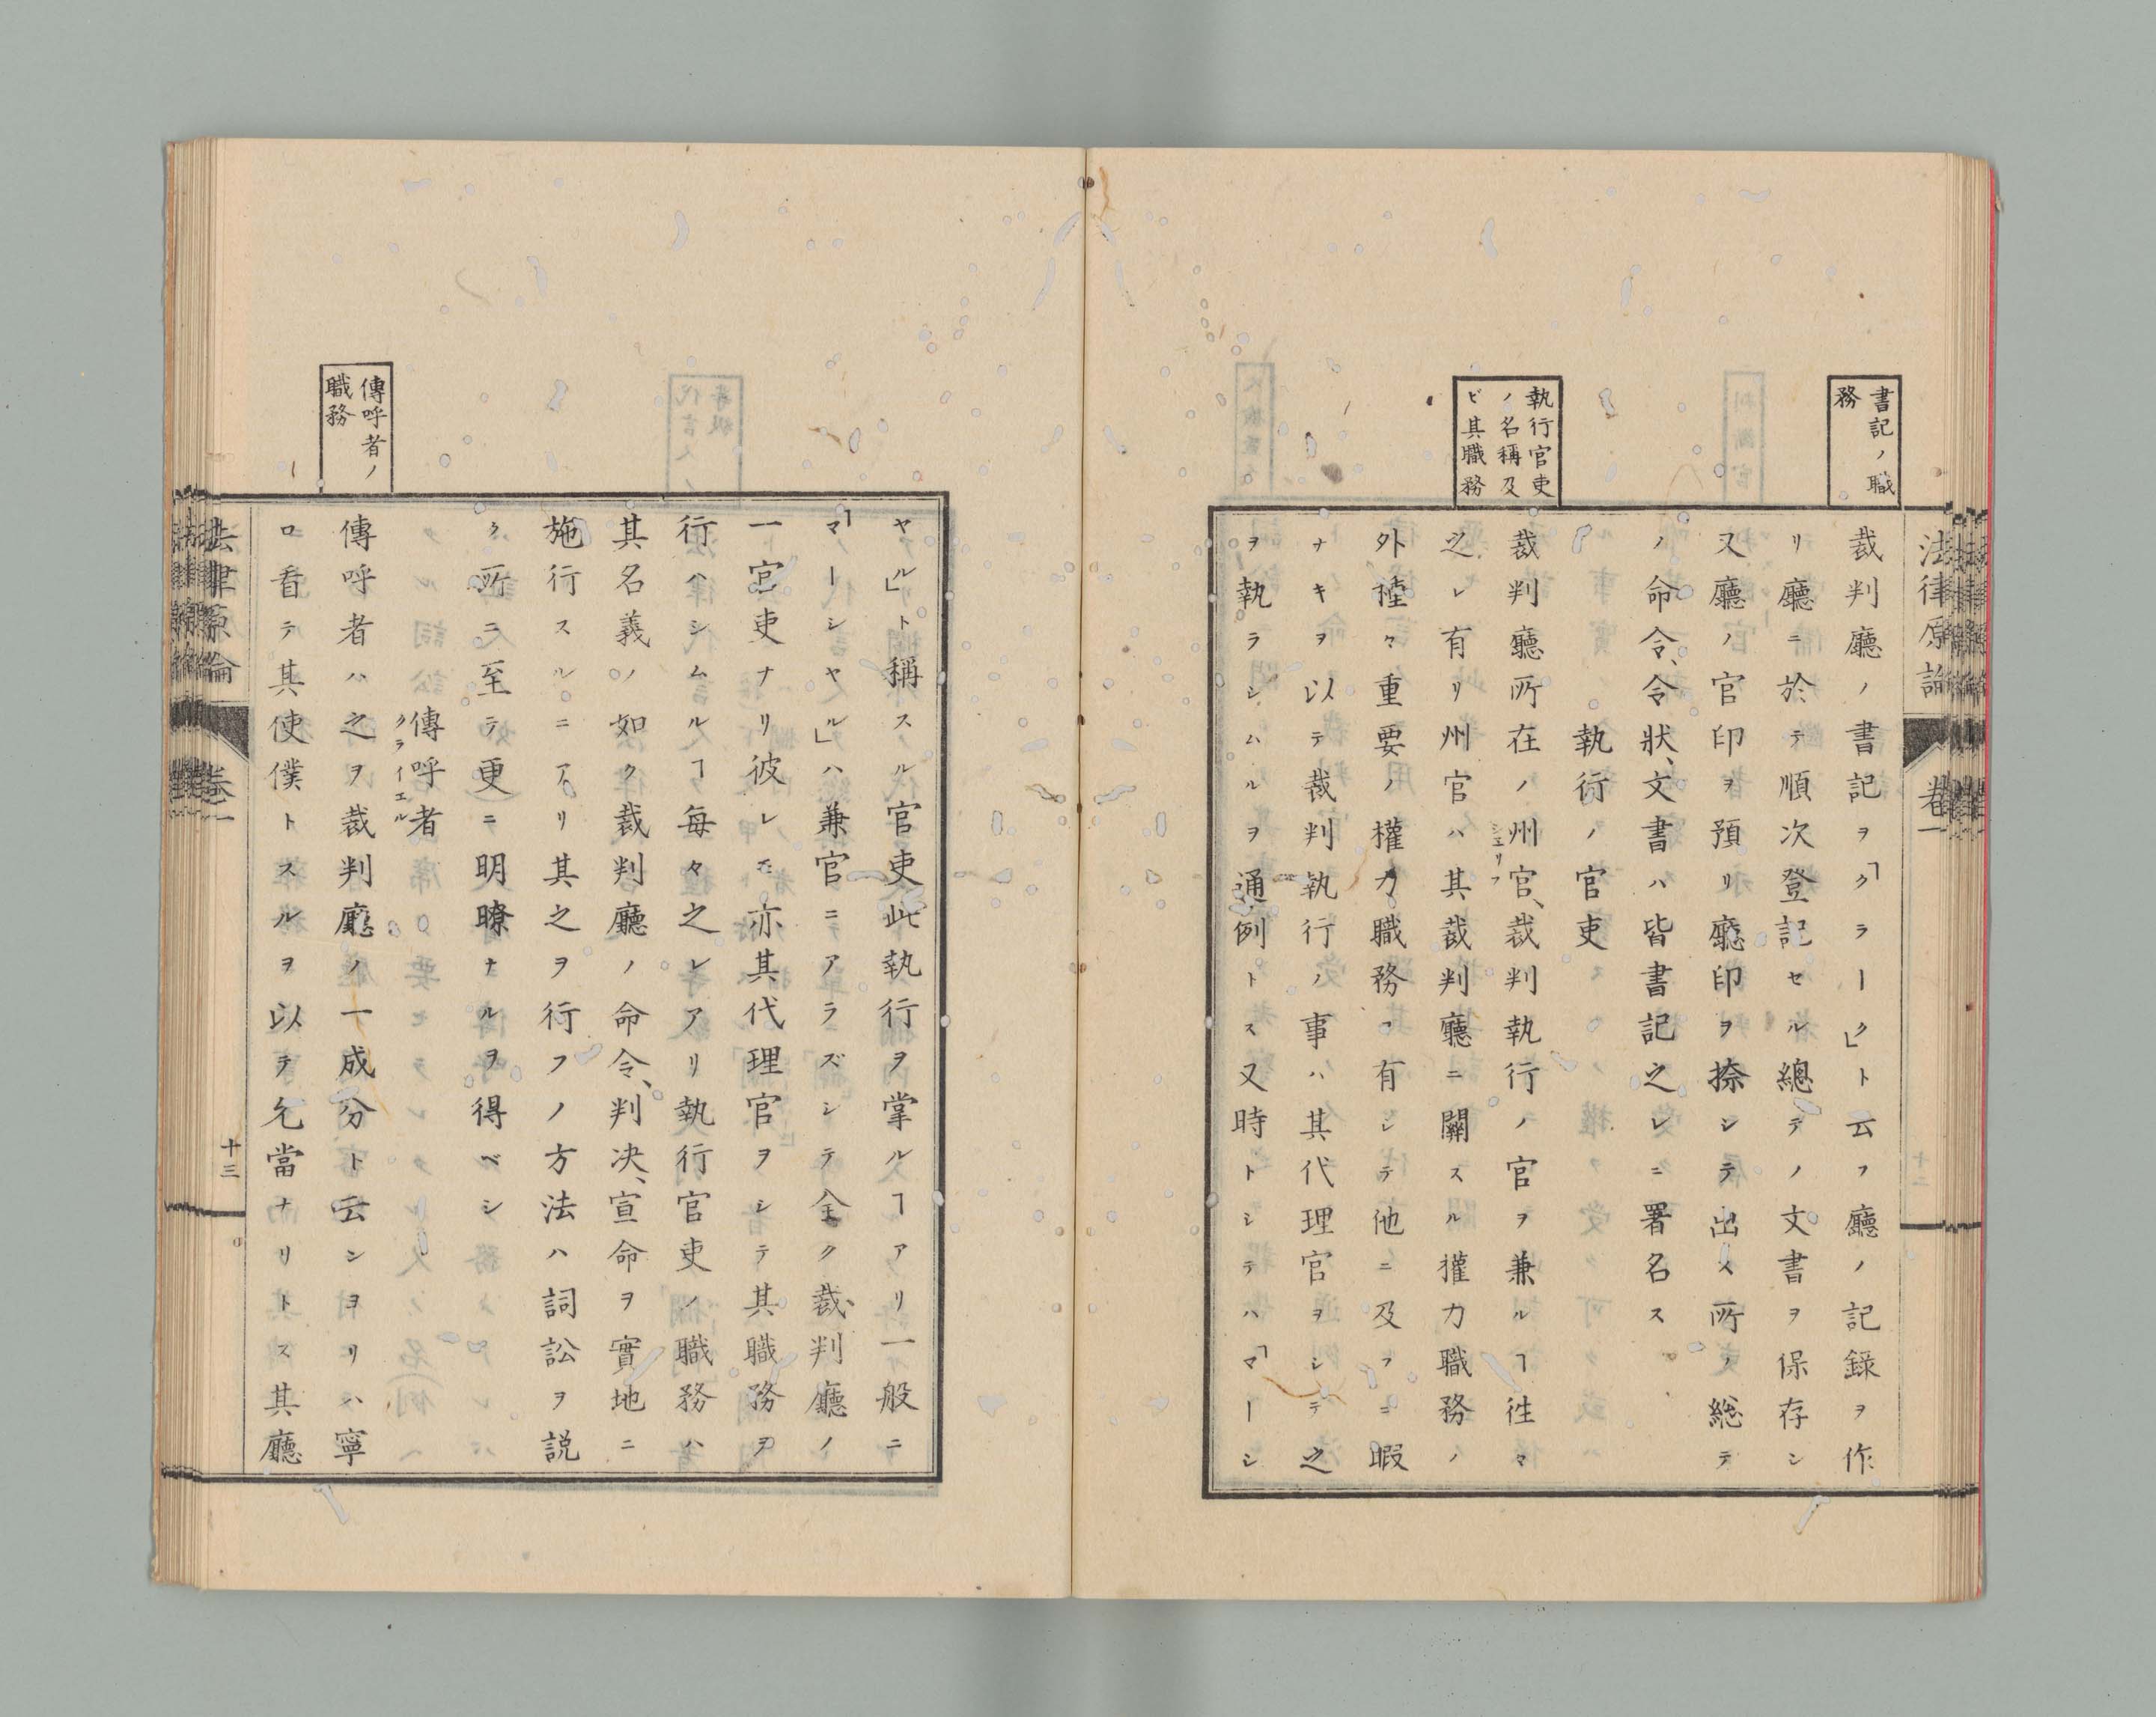 法律原論
卷一
書記ノ職
務
裁判廳ノ書記ヲ「クラーク」ト云フ廳ノ記錄ヲ作
リ廳ニ於テ順次登記セル總テノ文書ヲ保存シ
又廳ノ官印ヲ預リ廳印ヲ捺シテ出ス所ノ総テ
ノ命令、令狀、文書ハ皆書記之レニ署名ス
執行ノ官吏
執行官吏
ノ名稱及
ビ其職務
裁判廳所在ノ州官、裁判執行ノ官ヲ兼ルヿ徃々
シエリフ
之レ有リ州官ハ其裁判廳ニ關スル權力職務ノ
外種々重要ノ權力職務ヲ有シテ他ニ及フニ暇
ナキヲ以テ裁判執行ノ事ハ其代理官ヲシテ之
ヲ執ラシムルヲ通例トス又時トシテハ「マーシ
ヤル」ト稱スル官吏此執行ヲ掌ルヿアリ一般ニ
「マーシヤル」ハ兼官ニアラズシテ全ク裁判廳ノ
一官吏ナリ彼レモ亦其代理官ヲシテ其職務ヲ
行ハシムルヿ每々之レアリ執行官吏ノ職務ハ
其名義ノ如ク裁判廳ノ命令、判决、宣命ヲ實地ニ
施行スルニアリ其之ヲ行フノ方法ハ詞訟ヲ説
ク所ニ至テ更ニ明瞭ナルヲ得ベシ
傳呼者
クライエル
傳呼者ノ
職務
傳呼者ハ之ヲ裁判廳ノ一成分ト云ンヨリハ寧
ロ看テ其使僕トスルヲ以テ允當ナリトス其廳
法律原論
卷一
十三